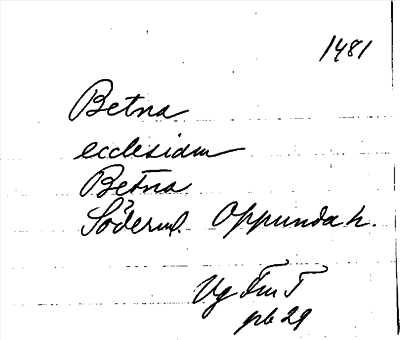 1481
Betna
ecclesiam
Betna
Söderml. Oppunda h.
Vg Fm T
pb 29